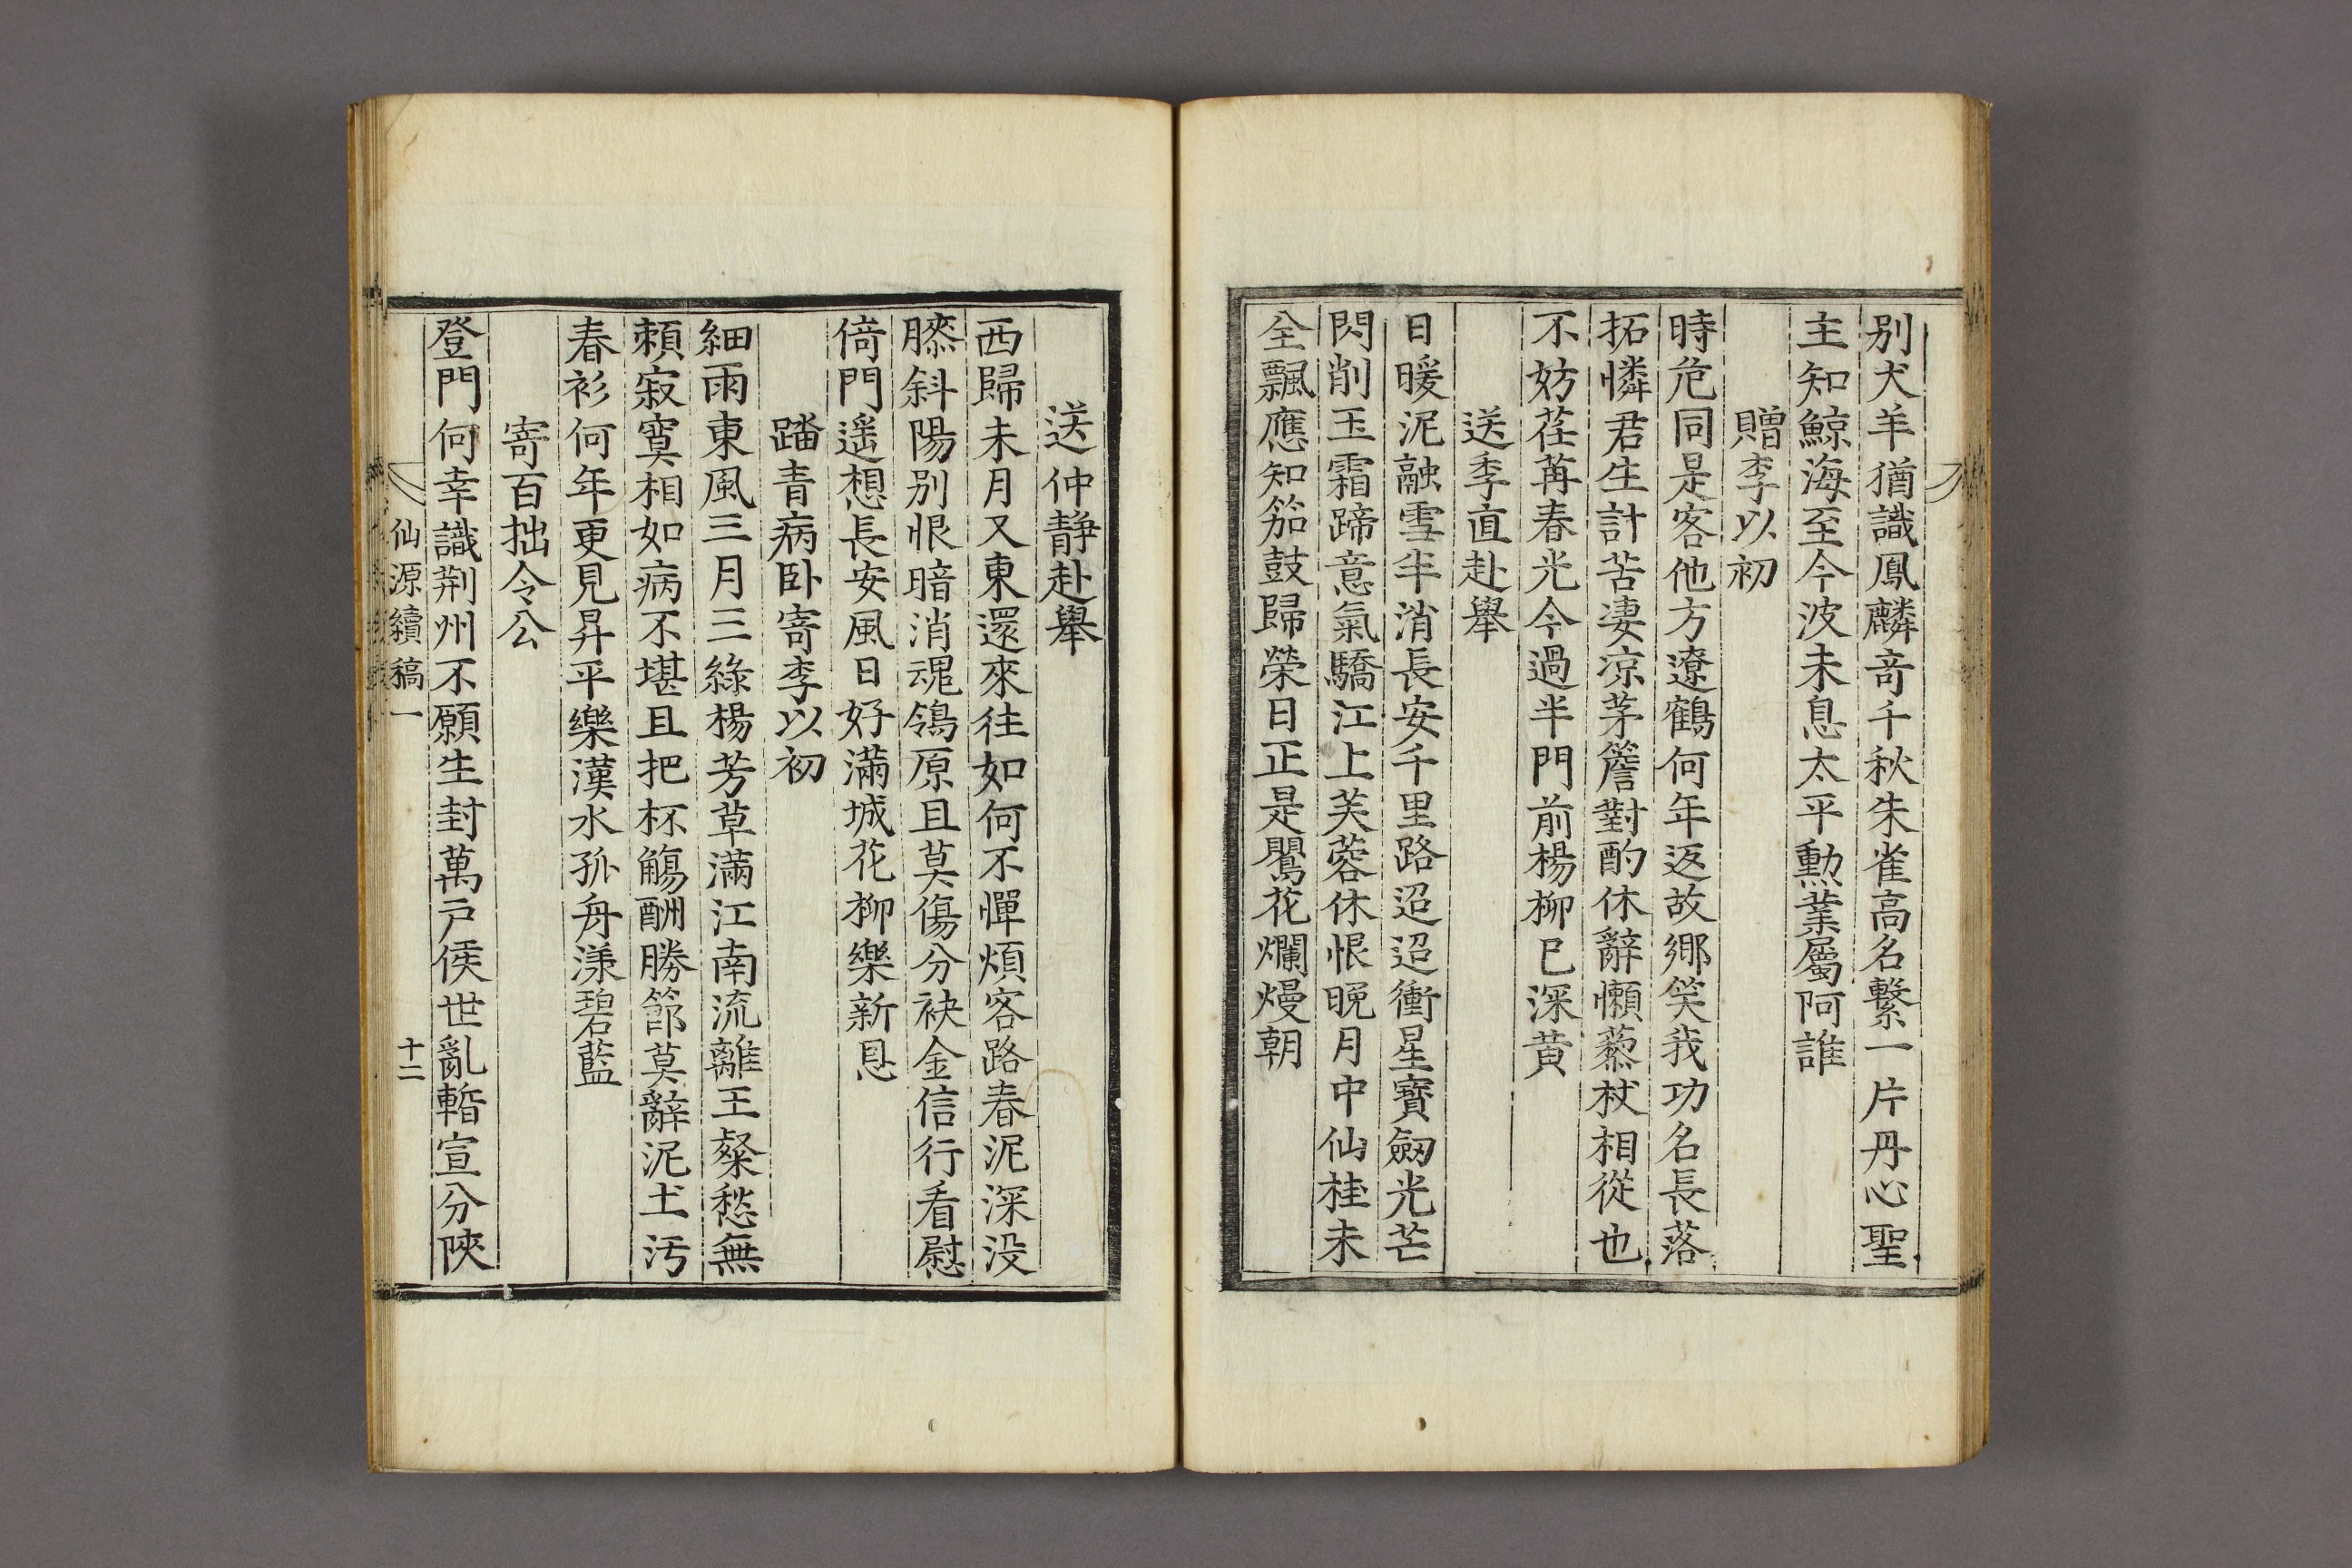 别犬羊猶識鳳麟竒千秋朱雀高名繫一片丹心聖
主知鯨海至今波未息太平勳業屬阿誰
贈李以初
時危同是客他方遼鶴何年返故鄉笑我功名長落
拓憐君生計苦凄凉茅簷對酌休辭懶藜杖相從也
不妨荏苒春光今過半門前楊柳已深黄
送季直赴舉
日暖泥融雪半消長安千里路迢迢衝星寶劒光芒
閃削玉霜蹄意氣驕江上芙蓉休恨晚月中仙桂未
全飄應知笳鼓歸榮日正是鸎花爛熳朝
送仲靜赴舉
西歸未月又東還來往如何不憚煩客路春泥深没
䣛斜陽别恨暗消魂鴒原且莫傷分袂金信行看慰
倚門遥想長安風日好滿城花柳樂新恩
踏青病卧寄李以初
細雨東風三月三綠楊芳草滿江南流離王粲愁無
頼寂寞相如病不堪且把杯觴酬勝節莫辭泥土汚
春衫何年更見昇平樂漢水孤舟漾碧藍
寄百拙令公
登門何幸識荆州不願生封萬戸侯世亂暫宣分陜
仙源續稿一
十二